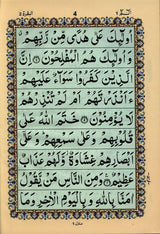 البقرة ٢
4
الٓمّٓ ١
أُولَٰئِكَ عَلَىٰ هُدًى مِنْ رَبِّهِمْ
وَأُولَٰئِكَ هُمُ الْمُفْلِحُونَ إِنَّ
الَّذِينَ كَفَرُوا سَوَاءٌ عَلَيْهِمْ
ءَأَنْذَرْتَهُمْ أَمْ لَمْ تُنْذِرْهُمْ
لَا يُؤْمِنُونَ خَتَمَ اللَّهُ عَلَىٰ
قُلُوبِهِمْ وَعَلَىٰ سَمْعِهِمْ وَعَلَىٰ
أَبْصَارِهِمْ غِشَاوَةٌ وَلَهُمْ عَذَابٌ
عَظِيمٌ وَمِنَ النَّاسِ مَنْ يَقُولُ
آمَنَّا بِاللَّهِ وَبِالْيَوْمِ الْآخِرِ وَمَا